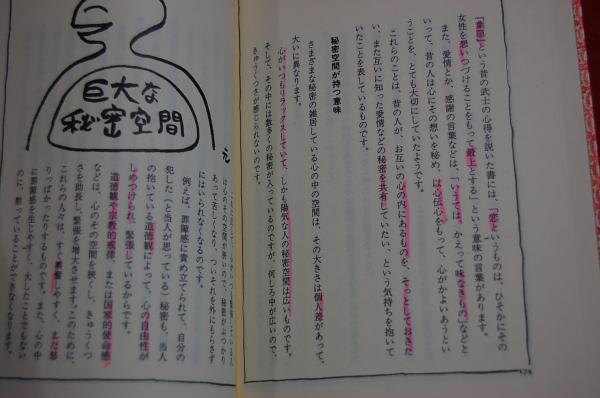 『葉隠』という昔の武士の心得を説いた書には、「恋というものは、ひそかにその
女性を想いつづけることをもって最上とする」という意味の言葉があります。
また、愛情とか、感謝の言葉などは、「いうては、かえって味なきもの」などと
いって、昔の人は心にその想いを秘め、以心伝心をもって、心がかよいあうとい
うことを、とても大切にしていたようです。
これらのことは、昔の人が、お互いの心の内にあるものを、そっとしておきた
い、また互いに知った愛情などの秘密を共有していたい、という気持ちを抱いて
いたことを表しているものです。
秘密空間が持つ意味
さまざまな秘密の雑居している心の中の空間は、その大きさは個人差があって、
大いに異なります。
心がいつもリラックスしていて、しかも陽気な人の秘密空間は広いものです。
そして、その中には数多くの秘密が入っているのですが、何しろ中が広いので、
きゅうくつさが感じられないのです。
174
巨大な
秘密空間
え
あって苦しくなり、ついそれを外にもらさず
にはいられなくなるのです。
例えば、罪障感に責め立てられて、自分の
犯した(と当人が思っている)秘密も、当人
の抱いている道徳観によって、心の自由性が
しめつけられ、緊張しているからです。
道徳観や宗教的戒律、または国家的使命感
などは、心のその空間を狭くし、きゅうくつ
さを助長し、緊張を増大させます。このために、
これらの人々は、すぐ興奮しやすく、また怒
りっぽかったりするものです。また、心の中
に罪障感を生じやすく、大したことでもない
のに、黙っていることができなくなります。